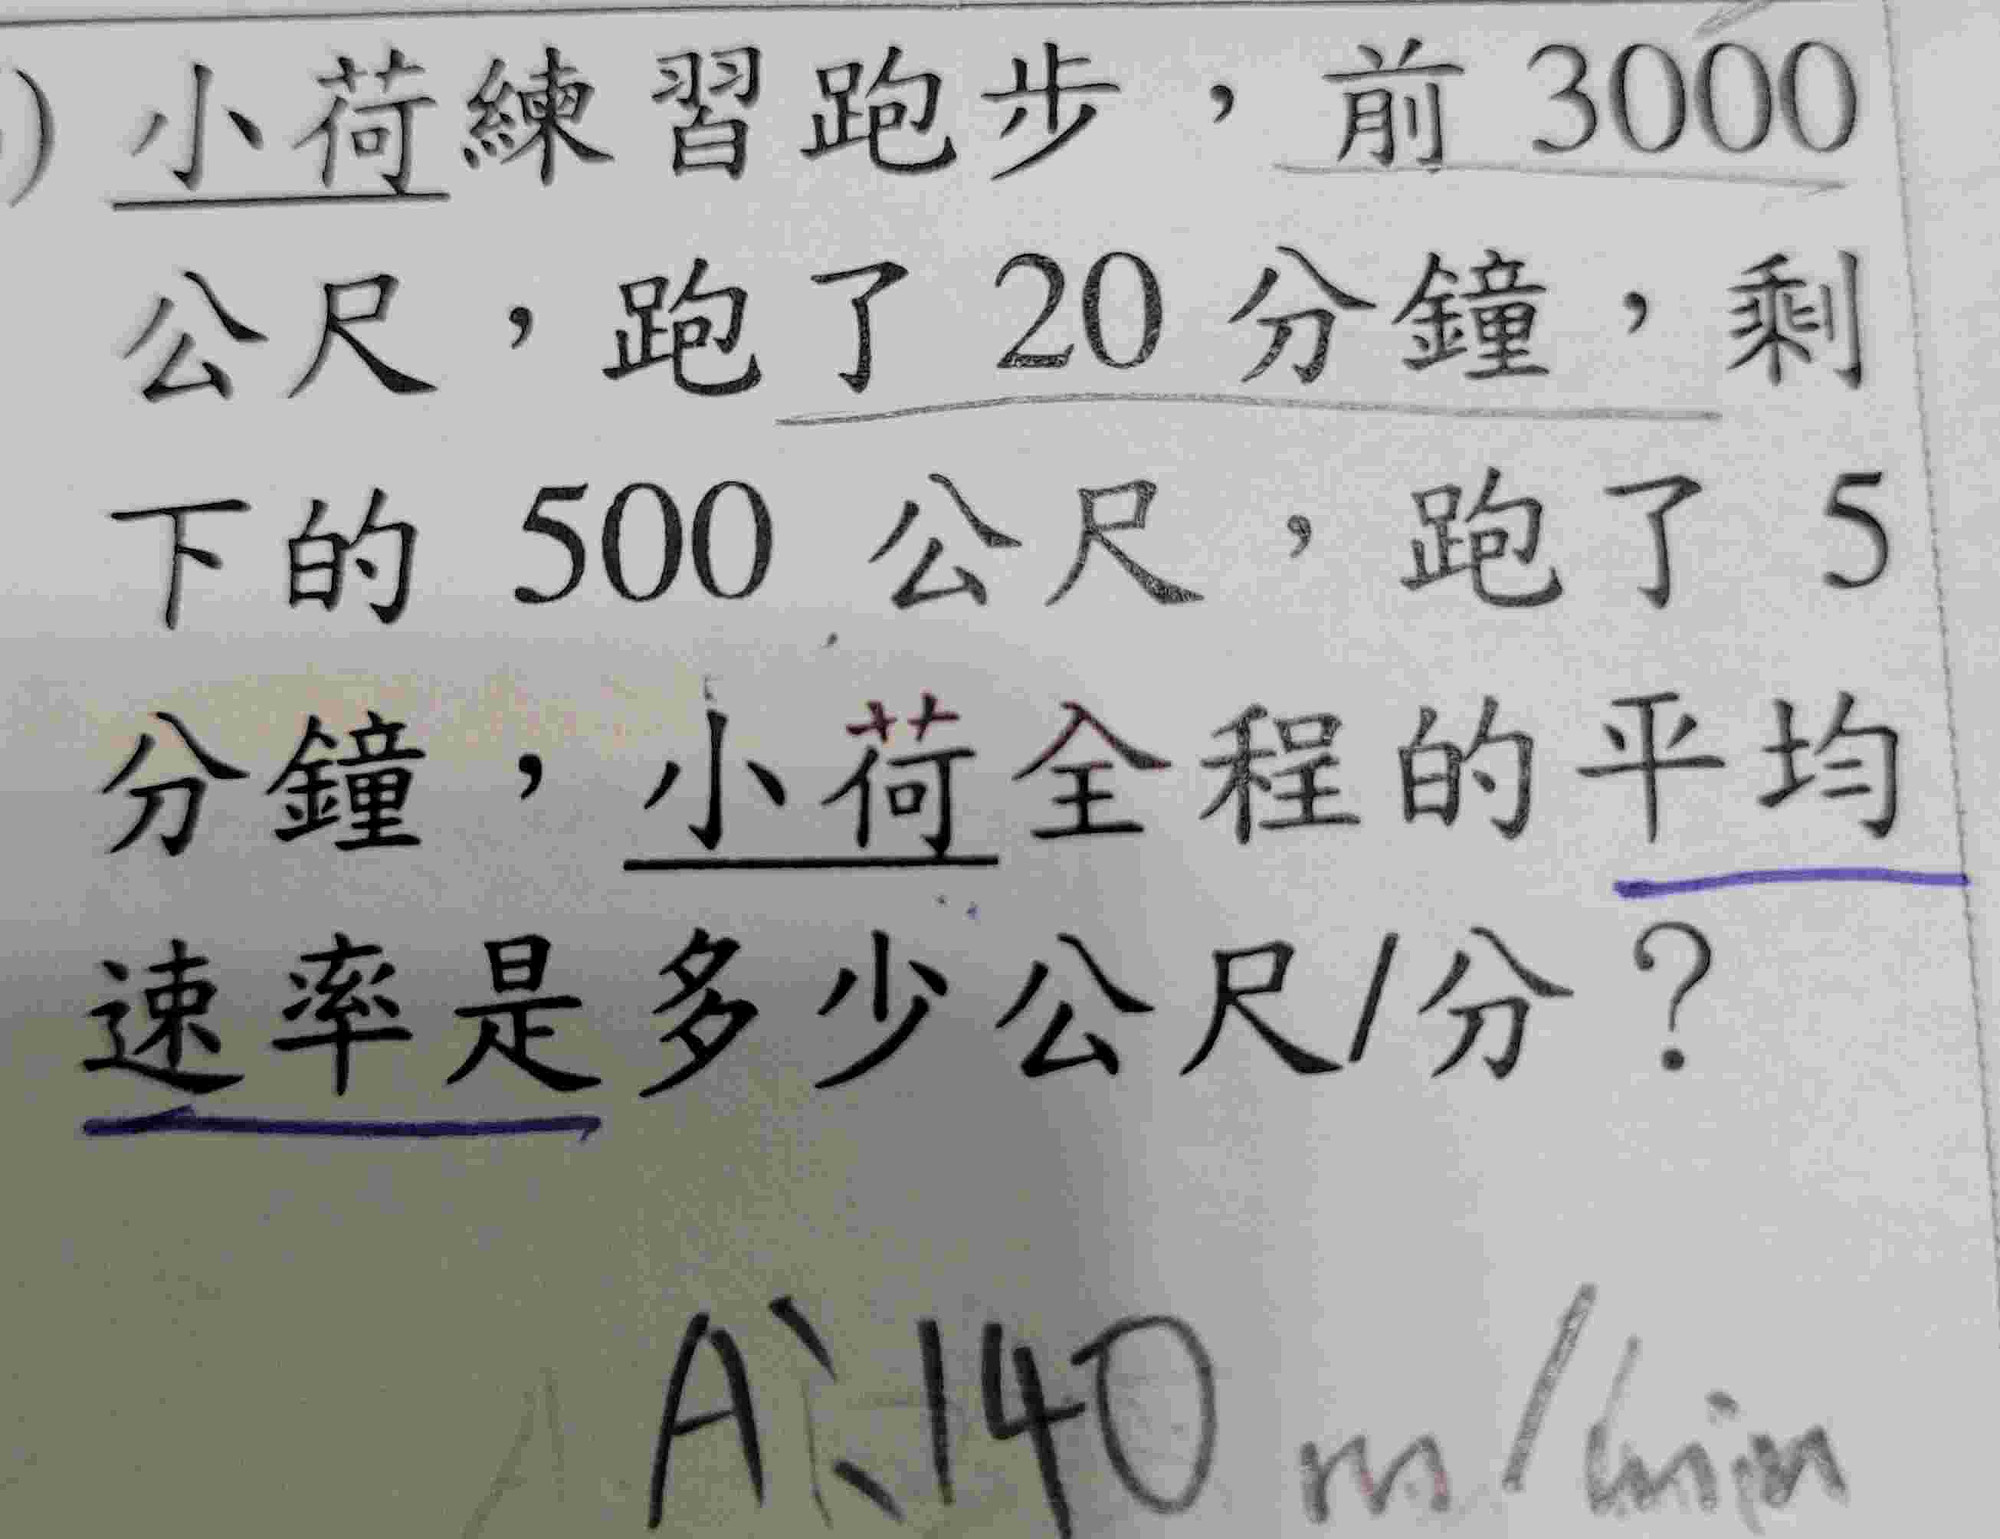 ) 小荷練習跑步，前 3000
公尺，跑了 20 分鐘，剩
下的 500 公尺，跑了 5
分鐘，小荷全程的平均
速率是多少公尺/分？
A:140 m/min